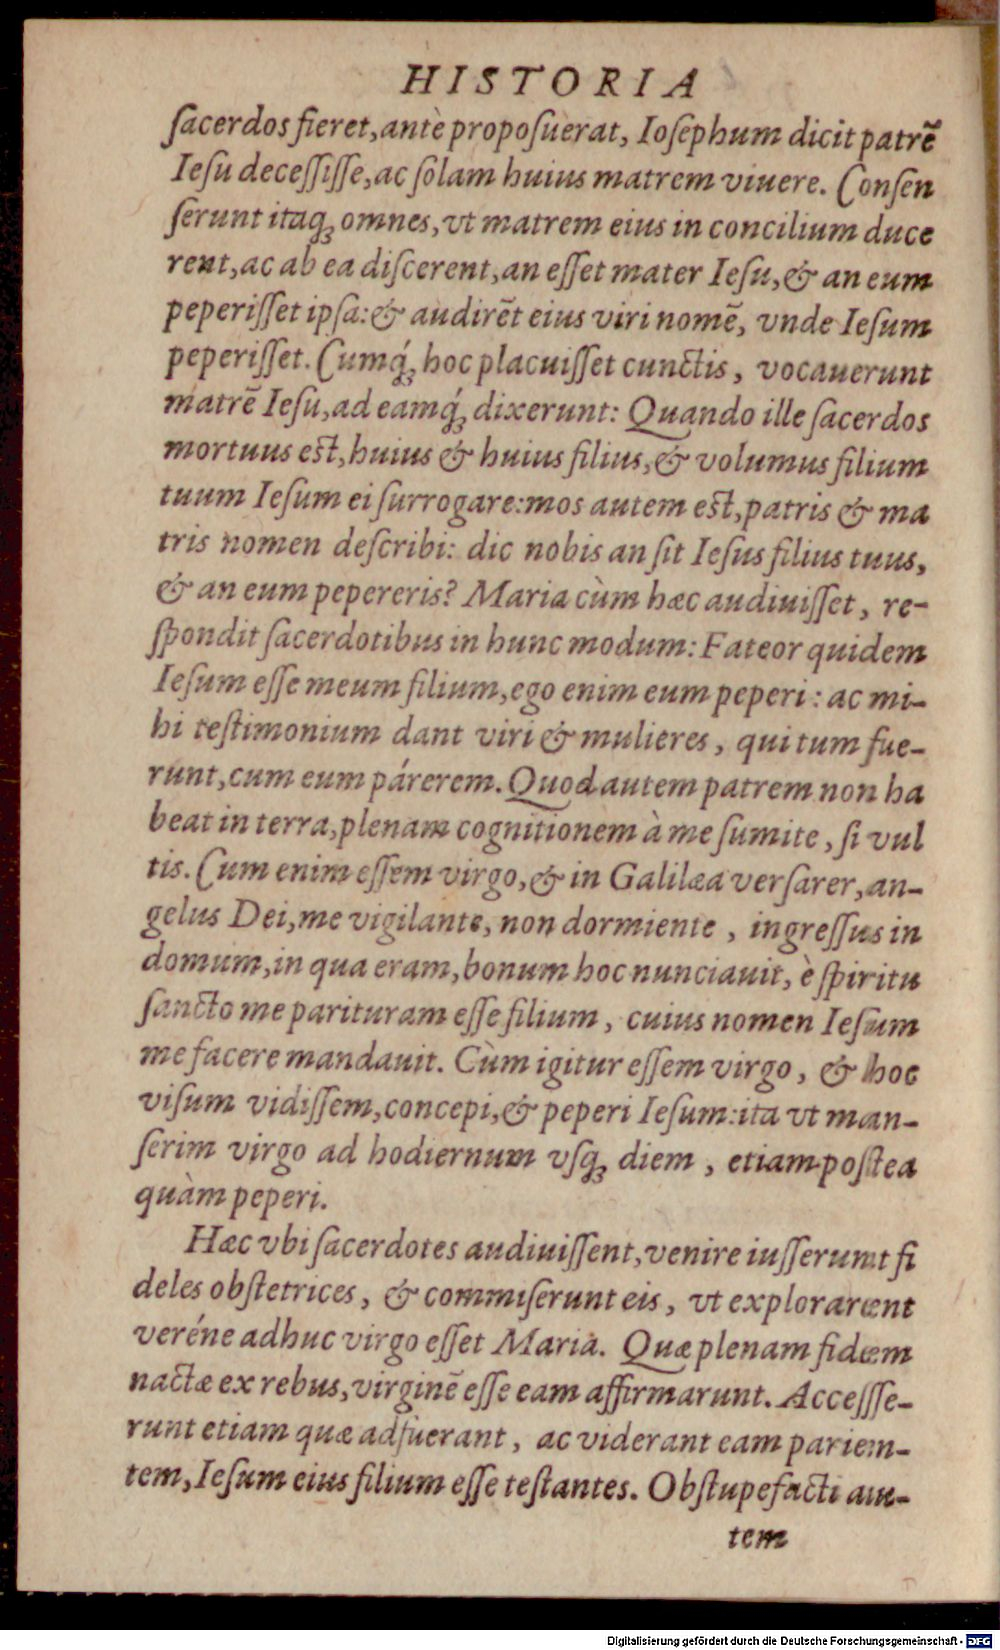 HISTORIA
ſacerdos fieret, antè propoſuerat, Ioſephum dicit patrē
Ieſu deceſſiſſe, ac ſolam huius matrem viuere. Conſen
ſerunt itaq́ꝫ omnes, vt matrem eius in concilium duce
rent, ac ab ea diſcerent, an eſſet mater Ieſu, & an eum
peperiſſet ipſa: & audirēt eius viri nomē, vnde Ieſum
peperiſſet. Cumq́ꝫ hoc placuiſſet cunctis, vocauerunt
matrē Ieſu, ad eamq́ꝫ dixerunt: Quando ille ſacerdos
mortuus eſt, huius & huius filius, & volumus filium
tuum Ieſum ei ſurrogare: mos autem eſt, patris & ma
tris nomen deſcribi: dic nobis an ſit Ieſus filius tuus,
& an eum pepereris? Maria cùm hæc audiuiſſet, re-
ſpondit ſacerdotibus in hunc modum: Fateor quidem
Ieſum eſſe meum filium, ego enim eum peperi: ac mi-
hi teſtimonium dant viri & mulieres, qui tum fue-
runt, cum eum párerem. Quod autem patrem non ha
beat in terra, plenam cognitionem à me ſumite, ſi vul
tis. Cum enim eſſem virgo, & in Galilæa verſarer, an-
gelus Dei, me vigilante, non dormiente, ingreſſus in
domum, in qua eram, bonum hoc nunciauit, è ſpiritu
ſancto me parituram eſſe filium, cuius nomen Ieſum
me facere mandauit. Cùm igitur eſſem virgo, & hoc
viſum vidiſſem, concepi, & peperi Ieſum: ita vt man-
ſerim virgo ad hodiernum vſqꝫ diem, etiam poſtea
quàm peperi.
Hæc vbi ſacerdotes audiuiſſent, venire iuſſerunt fi
deles obſtetrices, & commiſerunt eis, vt explorarent
veréne adhuc virgo eſſet Maria. Quæ plenam fidem
nactæ ex rebus, virginē eſſe eam affirmarunt. Acceſſe-
runt etiam quæ adfuerant, ac viderant eam parien-
tem, Ieſum eius filium eſſe teſtantes. Obſtupefacti au-
tem
Digitalisierung gefördert durch die Deutsche Forschungsgemeinschaft - DFG